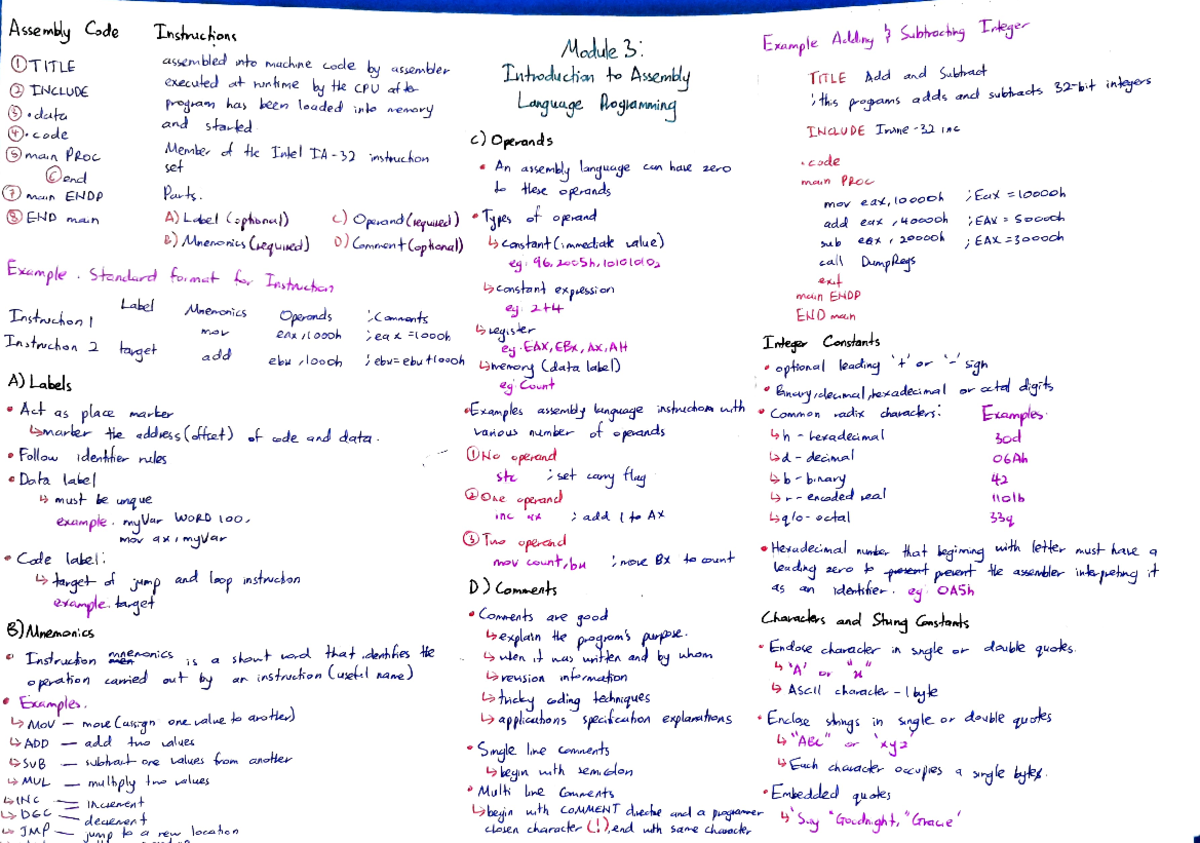 Assembly Code
① TITLE
② INCLUDE
③ .data
④ .code
⑤ main PROC
⑥ end
⑦ main ENDP
⑧ END main
Instructions
assembled into machine code by assembler
executed at runtime by the CPU after
program has been loaded into memory
and started.
Member of the Intel IA-32 instruction
set
Parts.
A) Label (optional) C) Operand (required)
B) Mnemonics (required) D) Comment (optional)
Example. Standard format for Instruction
Label Mnemonics Operands ;Comments
Instruction 1 mov eax,1000h ;eax=1000h
Instruction 2 target add ebu,100ch ;ebu=ebu+100oh
A) Labels
• Act as place marker
↳ marker the address (offset) of code and data.
• Follow identifier rules
• Data label
↳ must be unque
example. myVar WORD 100,
mov ax, myVar
• Code label:
↳ target of jump and loop instruction
example. target
B) Mnemonics
• Instruction mnemonics is a short word that identifies the
operation carried out by an instruction (useful name)
• Examples.
↳ MOV — move (assign one value to another)
↳ ADD — add two values
↳ SUB — subtract one values from another
↳ MUL — multiply two values
↳ INC — increment
↳ DEC — decrement
↳ JMP — jump to a new location
Module 3:
Introduction to Assembly
Language Programming
C) Operands
• An assembly language can have zero
to three operands
• Types of operand
↳ constant (immediate value)
eg: 96, 2005h, 10101010₂
↳ constant expression
eg: 2+4
↳ register
eg. EAX, EBx, Ax, AH
↳ memory (data label)
eg Count
• Examples assembly language instruction with
various number of operands
① No operand
stc ;set carry flag
② One operand
inc ax ; add 1 to Ax
③ Two operend
mov count, bu ; move Bx to count
D) Comments
• Comments are good
↳ explain the program's purpose.
↳ when it was written and by whom
↳ revision information
↳ tricky coding techniques
↳ applications specification explanations
• Single line comments
↳ begin with semicolon
• Multi line Comments
↳ begin with COMMENT directive and a programer
chosen character (!), end with same character
Example Adding & Subtracting Integer
TITLE Add and Subtract
; this programs adds and subtracts 32-bit integers
INCLUDE Irvine-32 inc
.code
main PROC
mov eax, 10000h ; Eax = 10000h
add eax, 40000h ; EAx = 50000h
sub eax, 20000h ; EAX = 30000h
call DumpRegs
exit
main ENDP
END main
Integer Constants
• optional leading '+' or '-' sign
• Binary, decimal, hexadecimal or octal digits
• Common radix characters: Examples.
↳ h - hexadecimal 30d
↳ d - decimal 06Ah
↳ b - binary 42
↳ r - encoded real 1101b
↳ q/o - octal 33q
• Hexadecimal number that begining with letter must have a
leading zero to present prevent the assembler interpreting it
as an identifier. eg: 0A5h
Characters and String Constants
• Enclose character in single or double quotes.
↳ 'A' or "x"
↳ ASCII character - 1 byte
• Enclose strings in single or double quotes
↳ "ABC" or 'xyz'
↳ Each character occupies a single bytes.
• Embedded quotes
↳ 'Say "Goodnight," Gracie'